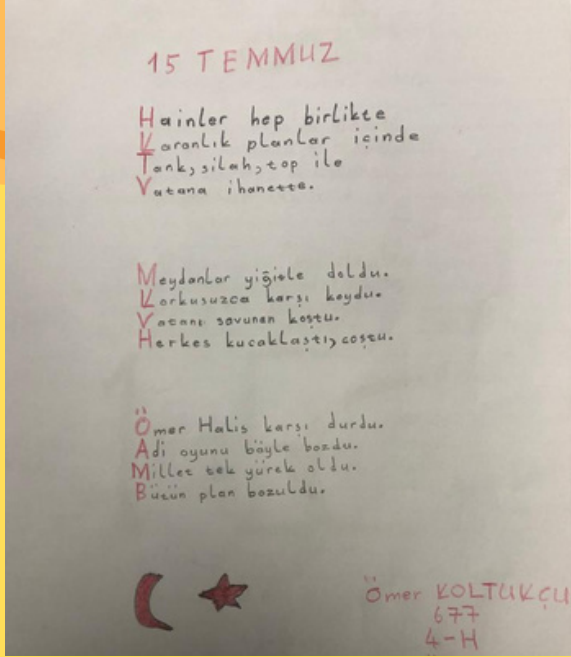 15 TEMMUZ
Hainler hep birlikte
Karanlık planlar içinde
Tank, silah, top ile
Vatana ihanette.
Meydanlar yiğitle doldu.
Korkusuzca karşı koydu.
Vatanı savunan koştu.
Herkes kucaklaştı, coştu.
Ömer Halis karşı durdu.
Adi oyunu böyle bozdu.
Millet tek yürek oldu.
Bütün plan bozuldu.
Ömer KOLTUKÇU
677
4-H